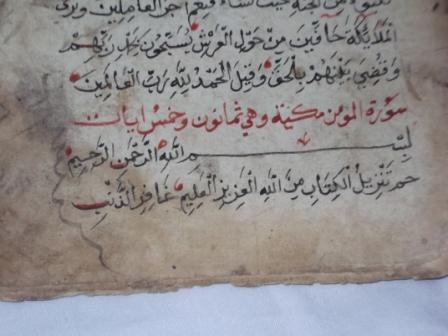 نتبوء من الجنة حيث نشاء فنعم اجر العاملين وترى
الملئكة حافين من حول العرش يسبحون بحمد ربهم
وقضي بينهم بالحق وقيل الحمد لله رب العالمين
سورة المؤمن مكية وهي ثمانون وخمس ايات
بسم الله الرحمن الرحيم
حم تنزيل الكتاب من الله العزيز العليم غافر الذنب